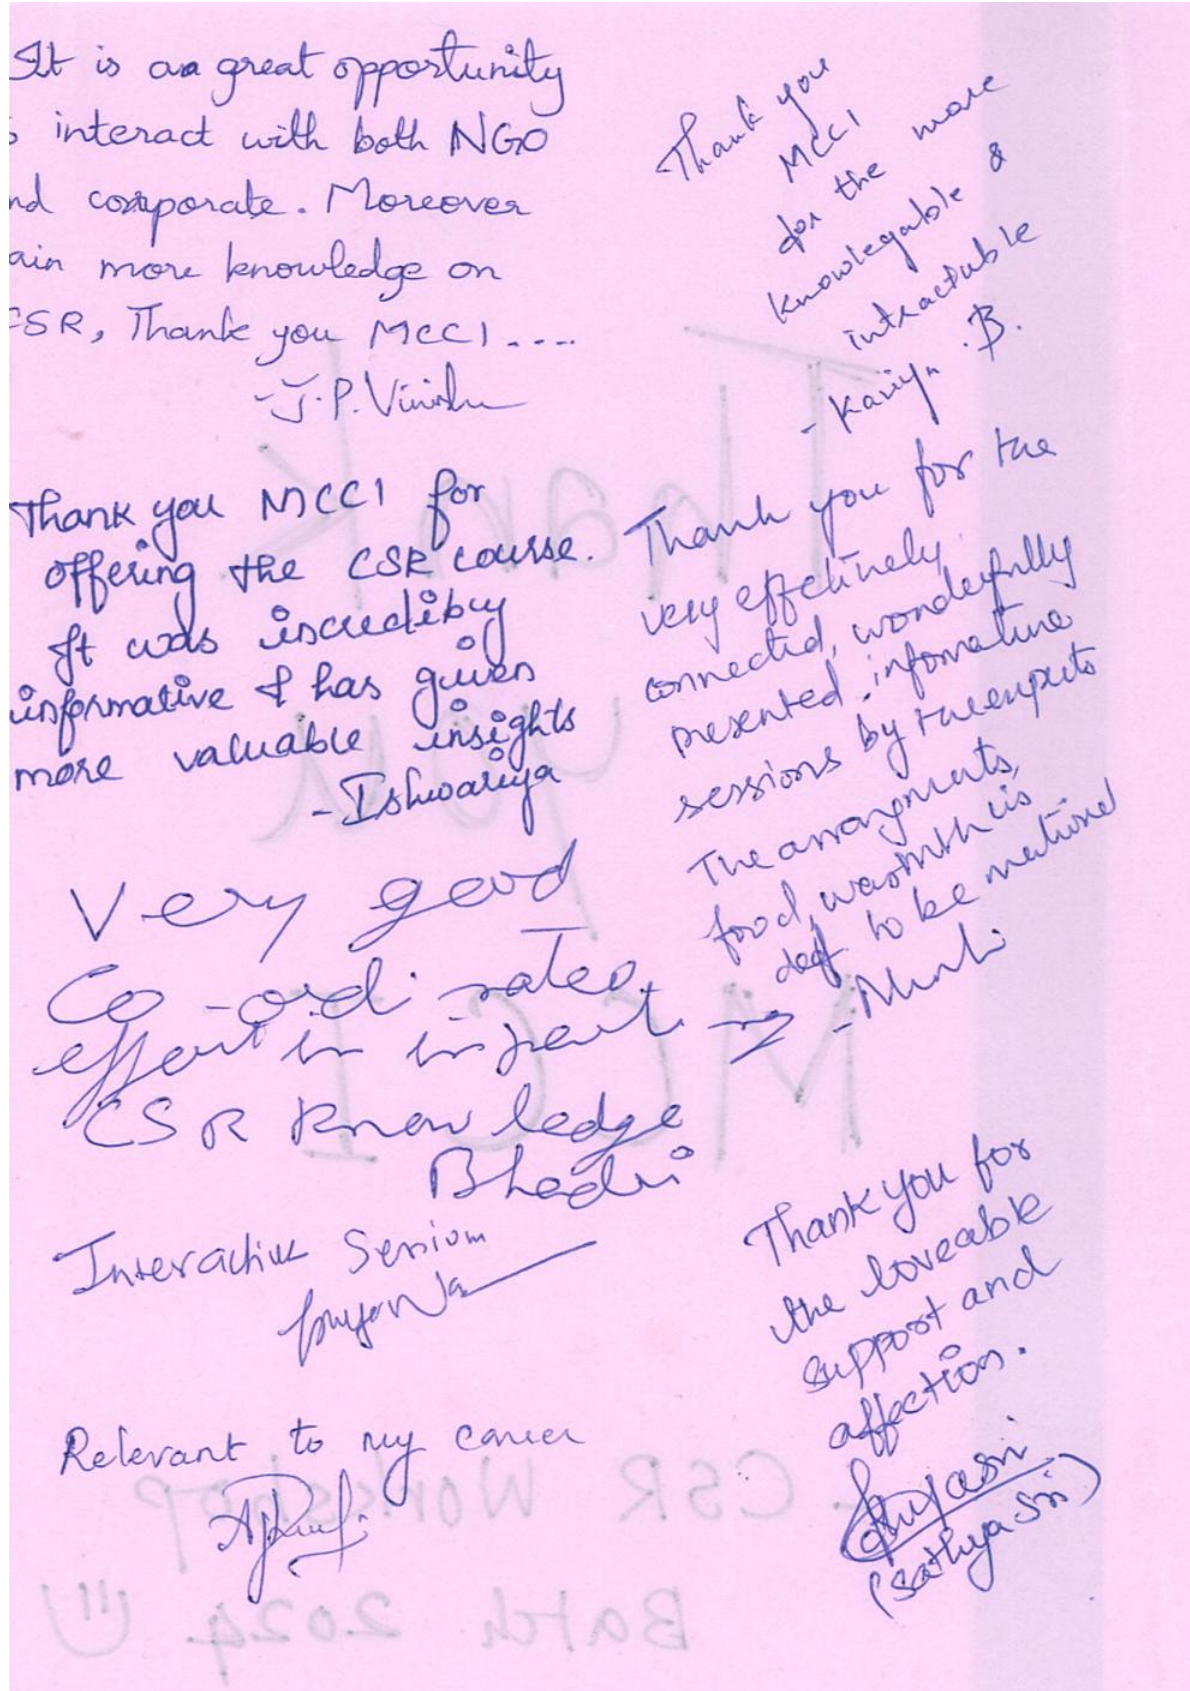 It is an great opportunity
interact with both NGO
nd corporate. Moreover
ain more knowledge on
CSR, Thank you MCCI ....
- J.P. Vinisha
Thank you MCCI for
offering the CSR course.
It was incredibly
informative & has given
more valuable insights
- Ishwariya
Very good
Co-ordinated
effort in
CSR Knowledge
Bhadri
Interactive Session
Relevant to my career
Thank you
MCCI
for the more
knowlegable &
intractable
- Kaviya. B.
Thank you for the
very effectively
connected, wonderfully
presented informative
sessions by the experts
The arrangments,
food, warmth is
to be mentioned
Thank you for
the loveable
support and
affection.
(Sathya Sri)
Thank
you
MCCI
- CSR Workshop
Batch 2024